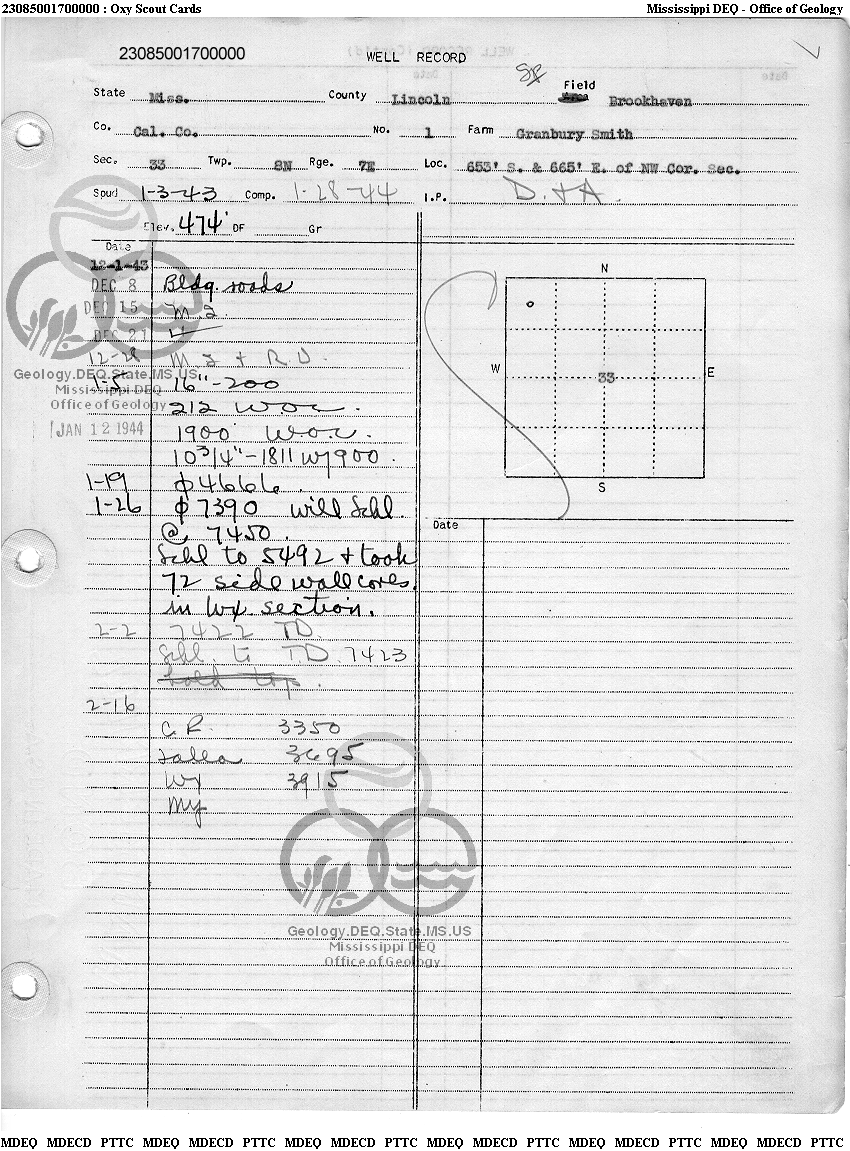 23085001700000 : Oxy Scout Cards Mississippi DEQ - Office of Geology
23085001700000 WELL RECORD
State Miss. County Lincoln Field Brookhaven
Co. Cal. Co. No. 1 Farm Granbury Smith
Sec. 33 Twp. 8N Rge. 7E Loc. 653' S. & 665' E. of NW Cor. Sec.
Spud 1-3-43 Comp. 1-28-44 I.P. D. & A.
Elev. 474' DF Gr
Date
12-1-43
DEC 8 Bldg. roads
DEC 15 M.I.
DEC 21 "
12-28 M.I. + R.U.
1-5 16"-200
212 W.O.C.
JAN 12 1944 1900' W.O.C.
10 3/4"-1811 w/900.
1-19 φ 4666.
1-26 φ 7390 will Schl.
@ 7450.
Schl to 5492 + took
72 side wall cores.
in Wx section.
2-2 7422 TD.
Schl. to T.D. 7423
2-16
C.R. 3350
3695
Wx 3915
My
N
W 33 E
S
Date
Geology.DEQ.State.MS.US
Mississippi DEQ
Office of Geology
Geology.DEQ.State.MS.US
Mississippi DEQ
Office of Geology
MDEQ MDECD PTTC MDEQ MDECD PTTC MDEQ MDECD PTTC MDEQ MDECD PTTC MDEQ MDECD PTTC MDEQ MDECD PTTC